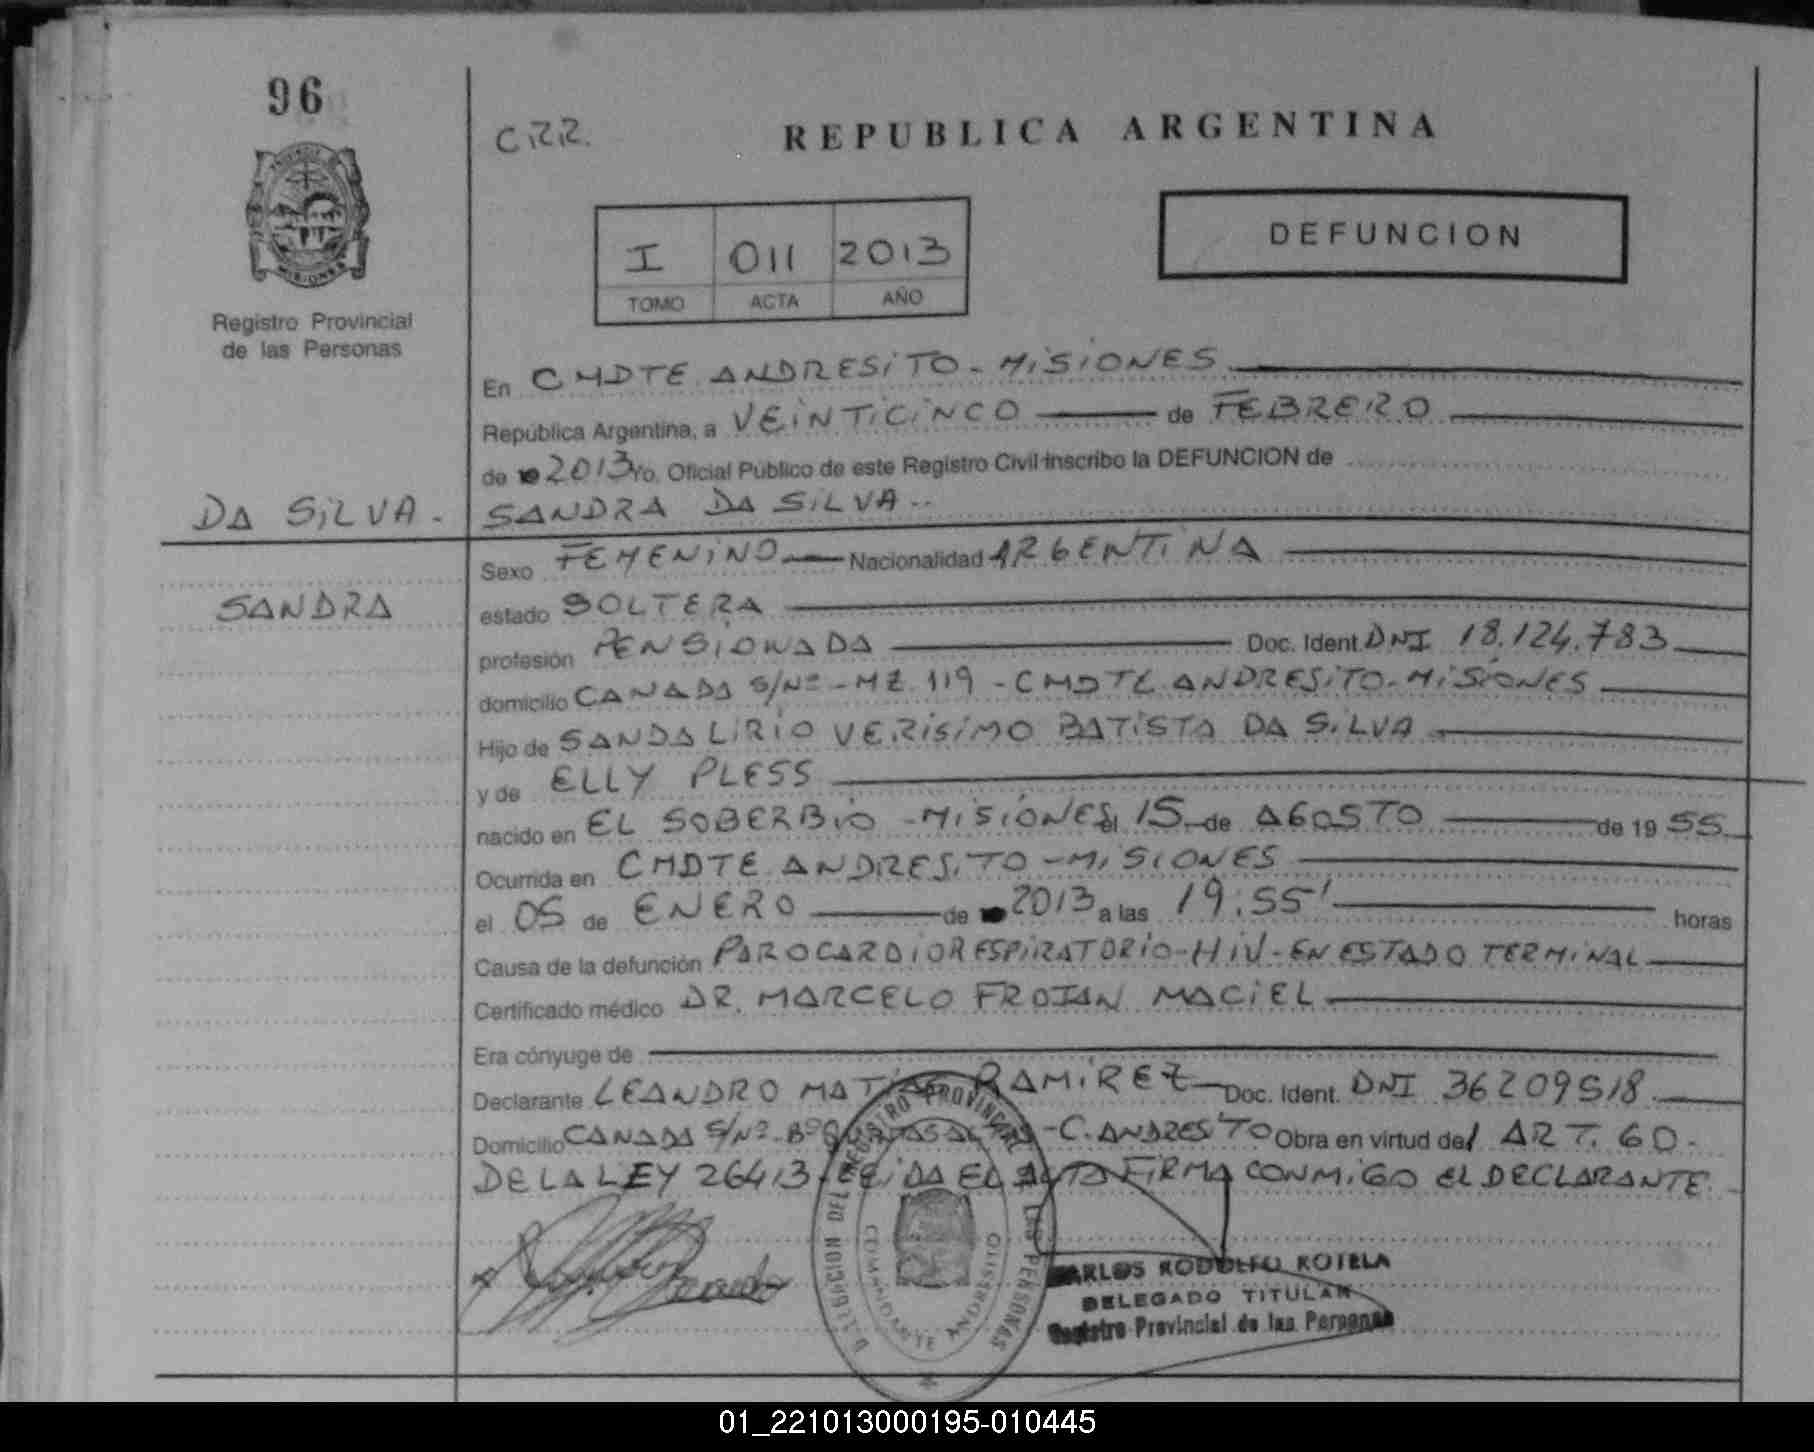 96
C.R.R.
REPUBLICA ARGENTINA
MISIONES
I 011 2013
TOMO ACTA AÑO
DEFUNCION
Registro Provincial
de las Personas
En CMDTE ANDRESITO - MISIONES
República Argentina, a VEINTICINCO de FEBRERO
de 2013 Yo, Oficial Público de este Registro Civil inscribo la DEFUNCION de
DA SILVA - SANDRA DA SILVA
Sexo FEMENINO Nacionalidad ARGENTINA
SANDRA
estado SOLTERA
profesión PENSIONADA Doc. Ident. DNI 18.124.783
domicilio CANADA S/Nº - MZ. 119 - CMDTE ANDRESITO - MISIONES
Hijo de SANDALIRIO VERISIMO BATISTA DA SILVA
y de ELLY PLESS
nacido en EL SOBERBIO - MISIONES el 15 de AGOSTO de 19 55
Ocurrida en CMDTE ANDRESITO - MISIONES
el 05 de ENERO de 2013 a las 19:55' horas
Causa de la defunción PAROCARDIORESPIRATORIO - HIV - EN ESTADO TERMINAL
Certificado médico DR. MARCELO FROIAN MACIEL
Era cónyuge de
Declarante LEANDRO MATIAS RAMIREZ Doc. Ident. DNI 36209518
Domicilio CANADA S/Nº - Bº - C. ANDRESITO Obra en virtud del ART. 60 -
DE LA LEY 26413 - LEIDA EL ACTA FIRMA CONMIGO EL DECLARANTE.
DIRECCION DEL REGISTRO PROVINCIAL DE LAS PERSONAS
COMANDANTE ANDRESITO
CARLOS RODOLFO ROTELA
DELEGADO TITULAR
Registro Provincial de las Personas
01_221013000195-010445